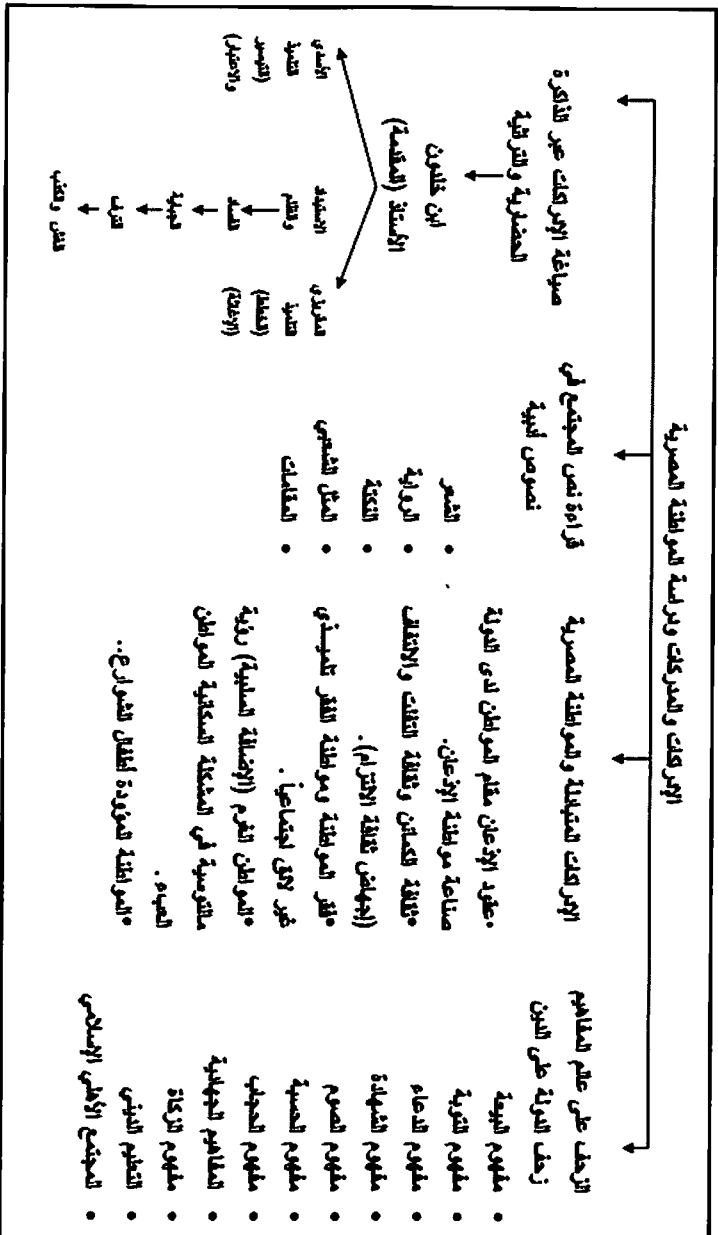 الإدراكات والمدركات ودراسة المواطنة المصرية
الزحف على عالم المفاهيم
زحف الدولة على الدين
• مفهوم البيعة
• مفهوم التوبة
• مفهوم الدعاء
• مفهوم الشهادة
• مفهوم الصوم
• مفهوم الحسبة
• مفهوم الحجاب
• المفاهيم الجهادية
• مفهوم الزكاة
• التعليم الديني
• المجتمع الأهلي الإسلامي
الإدراكات المتبادلة والمواطنة المصرية
•عقود الإذعان مقام المواطن لدى الدولة
صناعة مواطنة الإذعان.
•ثقافة الكمائن وثقافة التفلت والالتفاف
(إجهاض ثقافة الالتزام).
•فقر المواطنة ومواطنة الفقر تلميذي
غير لائق اجتماعياً.
•المواطن الغرم (الإضافة السلبية) رؤية
مالتوسية في المشكلة السكانية المواطن
العبء.
•المواطنة الموؤدة أطفال الشوارع..
قراءة نص المجتمع في
نصوص أدبية
• الشعر
• الرواية
• النكتة
• المثل الشعبي
• المقامات
صياغة الإدراكات عبر الذاكرة
الحضارية والتراثية
ابن خلدون
الأستاذ (المقدمة)
المقريزي
التلميذ
(الخطط)
(الإغاثة)
الاستبداد
والظلم
الفساد
الجباية
الترف
الغش والكذب
الأسدي
التلميذ
(التيسير
والاعتبار)